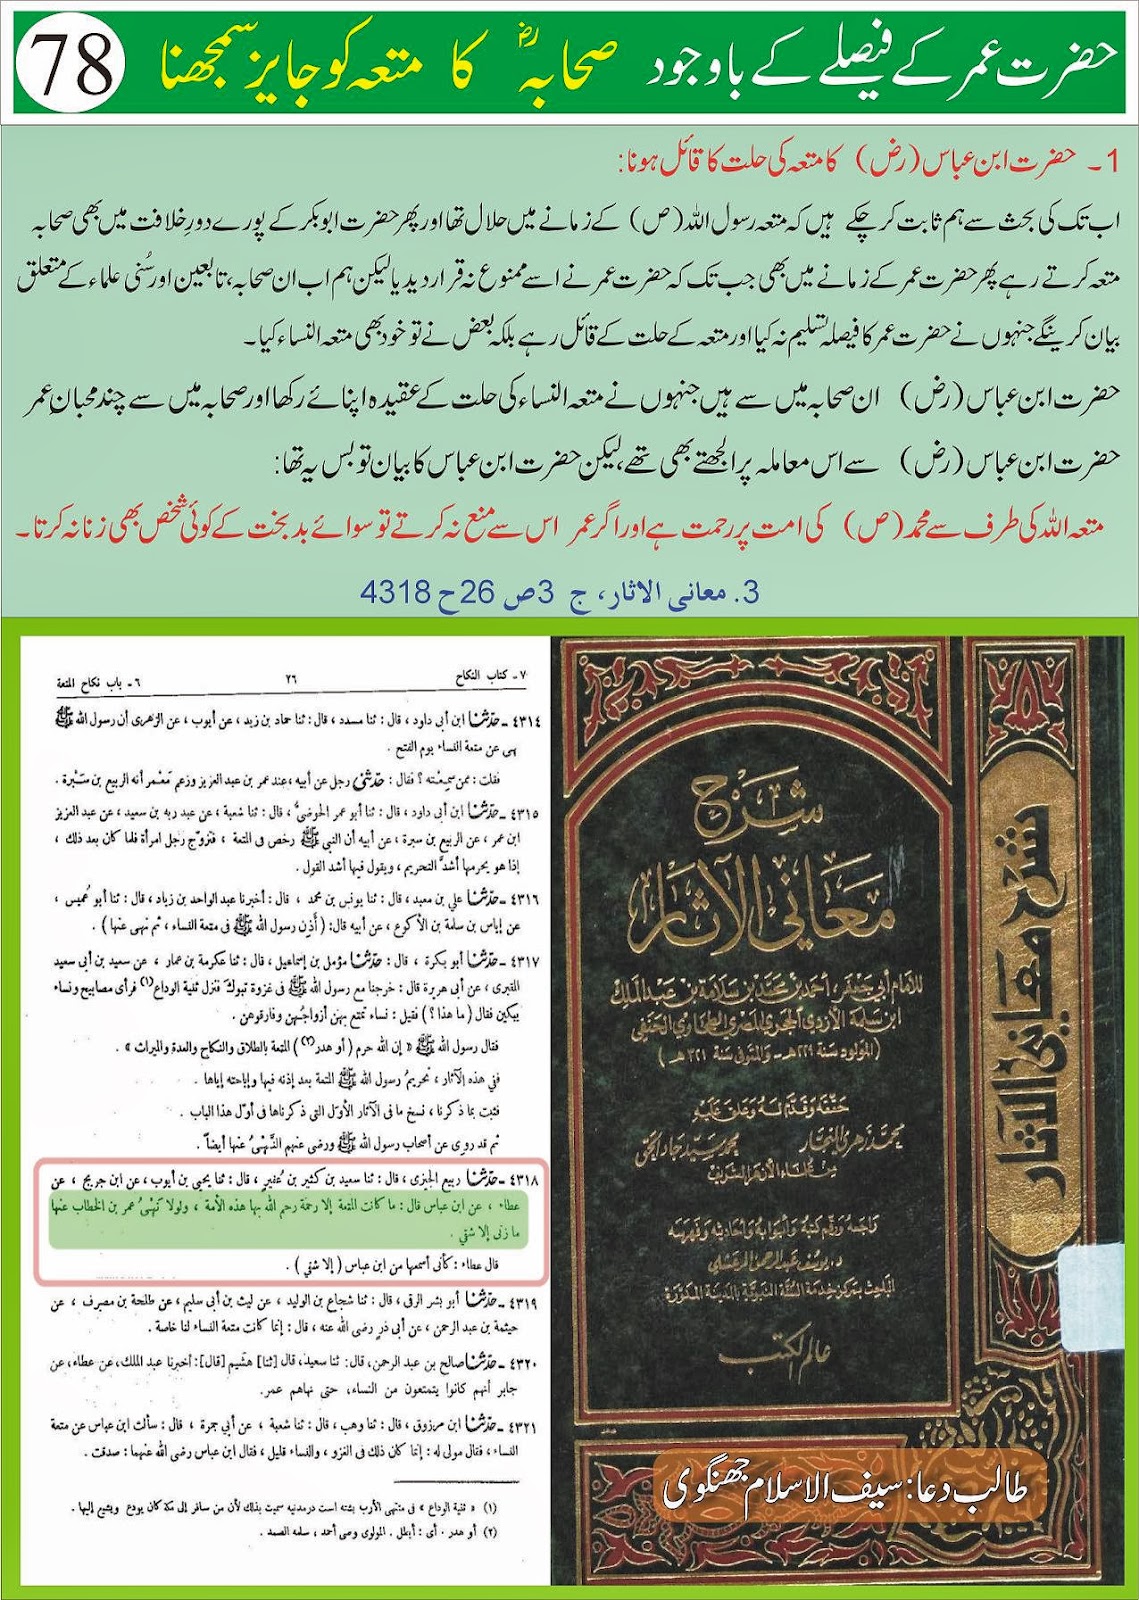 78
حضرت عمر کے فیصلے کے باوجود صحابہؓ کا متعہ کو جایز سمجھنا
1۔ حضرت ابن عباس (رض) کا متعہ کی حلت کا قائل ہونا:
اب تک کی بحث سے ہم ثابت کر چکے ہیں کہ متعہ رسول اللہ (ص) کے زمانے میں حلال تھا اور پھر حضرت ابو بکر کے پورے دورِ خلافت میں بھی صحابہ
متعہ کرتے رہے پھر حضرت عمر کے زمانے میں بھی جب تک کہ حضرت عمر نے اسے ممنوع نہ قرار دیدیا لیکن ہم اب ان صحابہ، تابعین اور سُنی علماء کے متعلق
بیان کرینگے جنہوں نے حضرت عمر کا فیصلہ تسلیم نہ کیا اور متعہ کے حلت کے قائل رہے بلکہ بعض نے تو خود بھی متعہ النساء کیا۔
حضرت ابن عباس (رض) ان صحابہ میں سے ہیں جنہوں نے متعہ النساء کی حلت کے عقیدہ اپنائے رکھا اور صحابہ میں سے چند محبانِ عمر
حضرت ابن عباس (رض) سے اس معاملہ پر الجھتے بھی تھے، لیکن حضرت ابن عباس کا بیان تو بس یہ تھا:
متعہ اللہ کی طرف سے محمد (ص) کی امت پر رحمت ہے اور اگر عمر اس سے منع نہ کرتے تو سوائے بد بخت کے کوئی شخص بھی زنا نہ کرتا۔
3. معانی الاثار، ج 3 ص 26 ح 4318
٧ - كتاب النكاح ٢٦ ٦ - باب نكاح المتعة
٤٣١٤ - حدثنا ابن أبي داود ، قال : ثنا مسدد ، قال : ثنا حماد بن زيد ، عن أيوب ، عن الزهرى أن رسول الله ﷺ
نهى عن متعة النساء يوم الفتح .
فقلت : ممن سمعته ؟ فقال : حدثنى رجل عن أبيه ، عند عمر بن عبد العزيز وزعم معمر أنه الربيع بن سبرة .
٤٣١٥ - حدثنا ابن أبي داود ، قال : ثنا أبو عمر الحوضىُّ ، قال : ثنا شعبة ، عن عبد ربه بن سعيد ، عن عبد العزيز
ابن عمر ، عن الربيع بن سبرة ، عن أبيه أن النبي ﷺ رخص فى المتعة ، فتزوّج رجل امرأة فلما كان بعد ذلك ،
إذا هو يحرمها أشدَّ التحريم ، ويقول فيها أشد القول .
٤٣١٦ - حدثنا علي بن معبد ، قال : ثنا يونس بن محمد ، قال : أخبرنا عبد الواحد بن زياد ، قال : ثنا أبو عُميس ،
عن إياس بن سلمة بن الأكوع ، عن أبيه قال : ( أَذِن رسول الله ﷺ فى متعة النساء ، ثم نهى عنها ) .
٤٣١٧ - حدثنا أبو بكرة ، قال : حدثنا مؤمل بن إسماعيل ، قال : ثنا عكرمة بن عمار ، عن سعيد بن أبى سعيد
المقبرى ، عن أبى هريرة قال : خرجنا مع رسول الله ﷺ فى غزوة تبوك فنزل ثنية الوداع(١) فرأى مصابيح ونساء
يبكين فقال ( ما هذا ؟ ) فقيل : نساء تمتع بهن أزواجُهن وفارقوهن .
فقال رسول الله ﷺ « إن الله حرم ( أو هدر(٢) ) المتعة بالطلاق والنكاح والعدة والميراث » .
ففي هذه الآثار ، تحريمُ رسول الله ﷺ المتعة بعد إذنه فيها وإباحته إياها .
فثبت بما ذكرنا ، نسخ ما فى الآثار الأوّل التى ذكرناها فى أوّل هذا الباب .
ثم قد روى عن أصحاب رسول الله ﷺ ورضى عنهم النَّهْىُ عنها أيضاً .
٤٣١٨ - حدثنا ربيع الجيزى ، قال : ثنا سعيد بن كثير بن عُفيرٍ ، قال : ثنا يحيى بن أيوب ، عن ابن جريج ، عن
عطاء ، عن ابن عباس قال : ما كانت المتعة إلا رحمة رحم الله بها هذه الأمة ، ولولا نَهْىُ عمر بن الخطاب عنها
ما زنى إلا شقي .
قال عطاء : كأنى أسمعها من ابن عباس ( إلا شقي ) .
٤٣١٩ - حدثنا أبو بشر الرقى ، قال : ثنا شجاع بن الوليد ، عن ليث بن أبى سليم ، عن طلحة بن مصرف ، عن
خيثمة بن عبد الرحمن ، عن أبى ذر رضى الله عنه ، قال : إنما كانت متعة النساء لنا خاصة .
٤٣٢٠ - حدثنا صالح بن عبد الرحمن، قال: ثنا سعيد، قال [ثنا] هشيم [قال]: أخبرنا عبد الملك، عن عطاء، عن
جابر أنهم كانوا يتمتعون من النساء، حتى نهاهم عمر.
٤٣٢١ - حدثنا ابن مرزوق ، قال : ثنا وهب ، قال : ثنا شعبة ، عن أبي جمرة ، قال : سألت ابن عباس عن متعة
النساء ، فقال مولى له : إنما كان ذلك فى الغزو ، والنساء قليل ، فقال ابن عباس رضى الله عنهما : صدقت .
(١) « ثنية الوداع » فى منتهى الأرب بشته است درمدينه سميت بذلك لأن من سافر إلى مكة كان يودع ويشيع إليها .
(٢) أو هدر ٠ أى : أبطل . المولوى وصى أحمد ، سلمه الصمد .
شرح
معاني الآثار
للإمام أبي جعفر ، أحمد بن محمد بن سلامة بن عبد الملك
ابن سلمة الأزدي الحجري المصري الطحاوي الحنفي
(المولود سنة ٢٢٩ هـ - والمتوفى سنة ٣٢١ هـ)
حققه وقدم له وعلق عليه
محمد زهري النجار محمد سيد جاد الحق
من علماء الأزهر الشريف
راجعه ورقم كتبه وأبوابه وأحاديثه وفهرسه
د. يوسف عبد الرحمن المرعشلي
الباحث بمركز خدمة السنة النبوية بالمدينة المنورة
عالم الكتب
شرح معاني الآثار
طالب دعا: سیف الاسلام جھنگوی